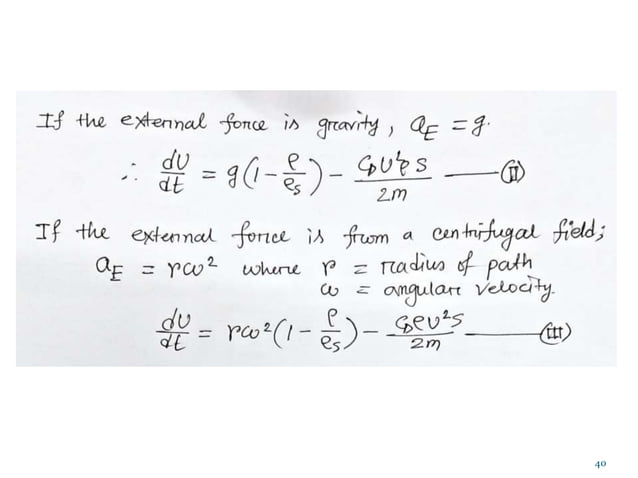 If the external force is gravity, a_E = g.
∴ dU/dt = g(1 - ρ/ρ_s) - C_D U²ρ S/2m —— (II)
If the external force is from a centrifugal field;
a_E = rω² where r = radius of path
ω = angular velocity.
dU/dt = rω²(1 - ρ/ρ_s) - C_D ρ U² S/2m —— (III)
40